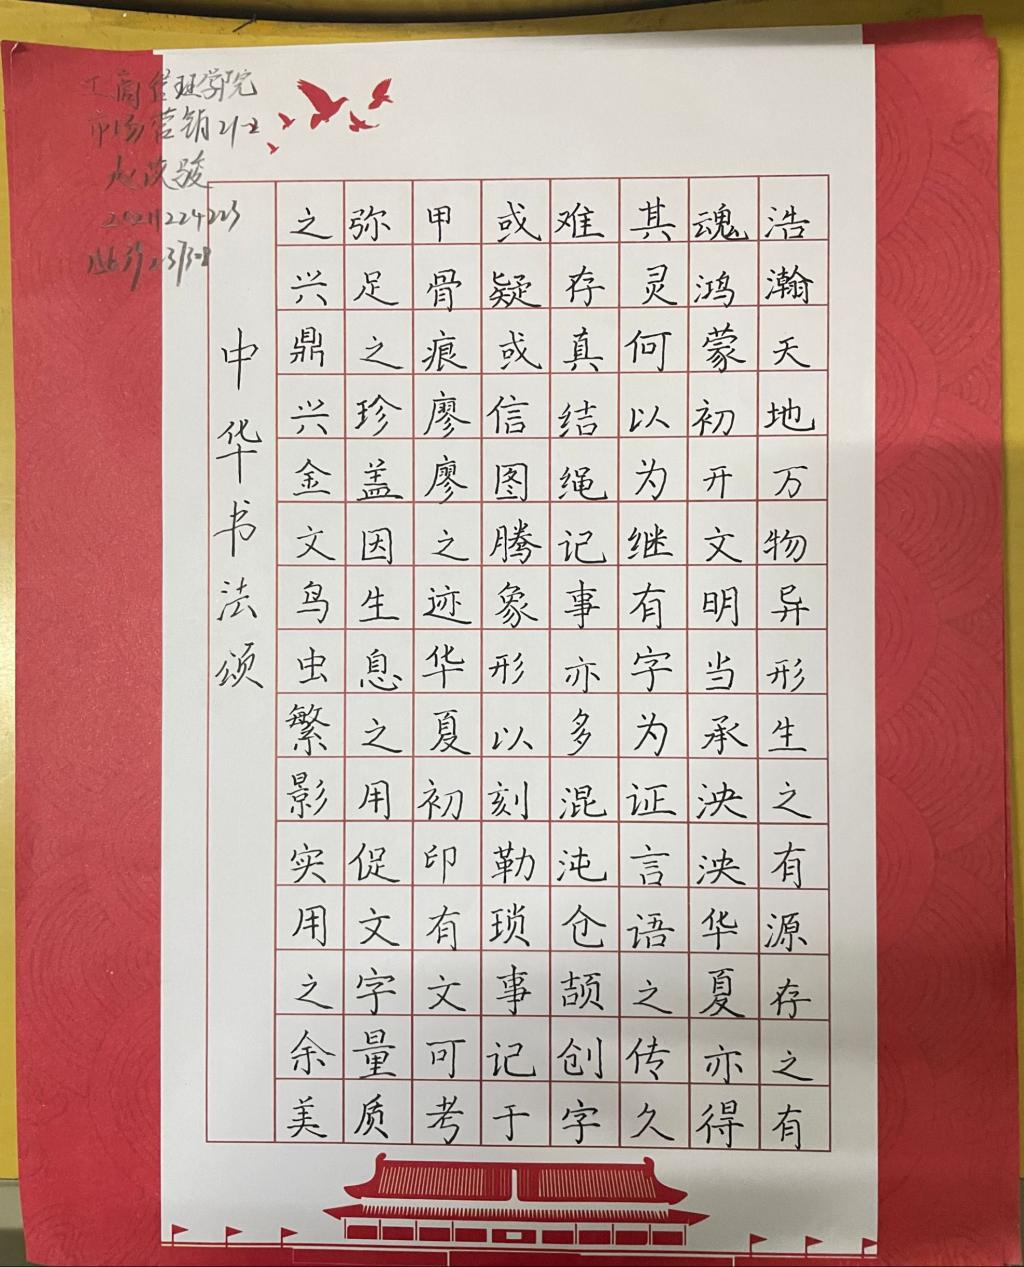 工商管理学院
市场营销21-2
中华书法颂
浩瀚天地万物异形生之有源存之有
魂鸿蒙初开文明当承泱泱华夏亦得
其灵何以为继有字为证言语之传久
难存真结绳记事亦多混沌仓颉创字
或疑或信图腾象形以刻勒琐事记于
甲骨痕廖廖之迹华夏初印有文可考
弥足之珍盖因生息之用促文字量质
之兴鼎兴金文鸟虫繁影实用之余美